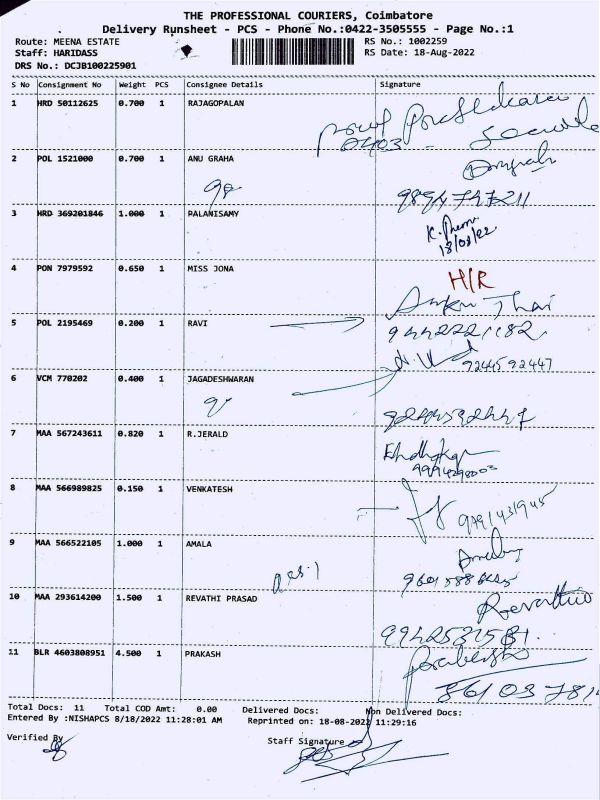 THE PROFESSIONAL COURIERS, Coimbatore
Delivery Runsheet - PCS - Phone No.:0422-3505555 - Page No.:1
Route: MEENA ESTATE RS No.: 1002259
Staff: HARIDASS RS Date: 18-Aug-2022
DRS No.: DCJB100225901
S No Consignment No Weight PCS Consignee Details Signature
1 HRD 50112625 0.700 1 RAJAGOPALAN
2 POL 1521000 0.700 1 ANU GRAHA
9894747211
3 HRD 369201846 1.000 1 PALANISAMY
18/08/22
4 PON 7979592 0.650 1 MISS JONA
H/R
5 POL 2195469 0.200 1 RAVI
9244592447
6 VCM 770202 0.400 1 JAGADESHWARAN
7 MAA 567243611 0.820 1 R.JERALD
8 MAA 566989825 0.150 1 VENKATESH
9 MAA 566522105 1.000 1 AMALA
10 MAA 293614200 1.500 1 REVATHI PRASAD
Revathi
11 BLR 4603808951 4.500 1 PRAKASH
Total Docs: 11 Total COD Amt: 0.00 Delivered Docs: Non Delivered Docs:
Entered By :NISHAPCS 8/18/2022 11:28:01 AM Reprinted on: 18-08-2022 11:29:16
Verified By Staff Signature